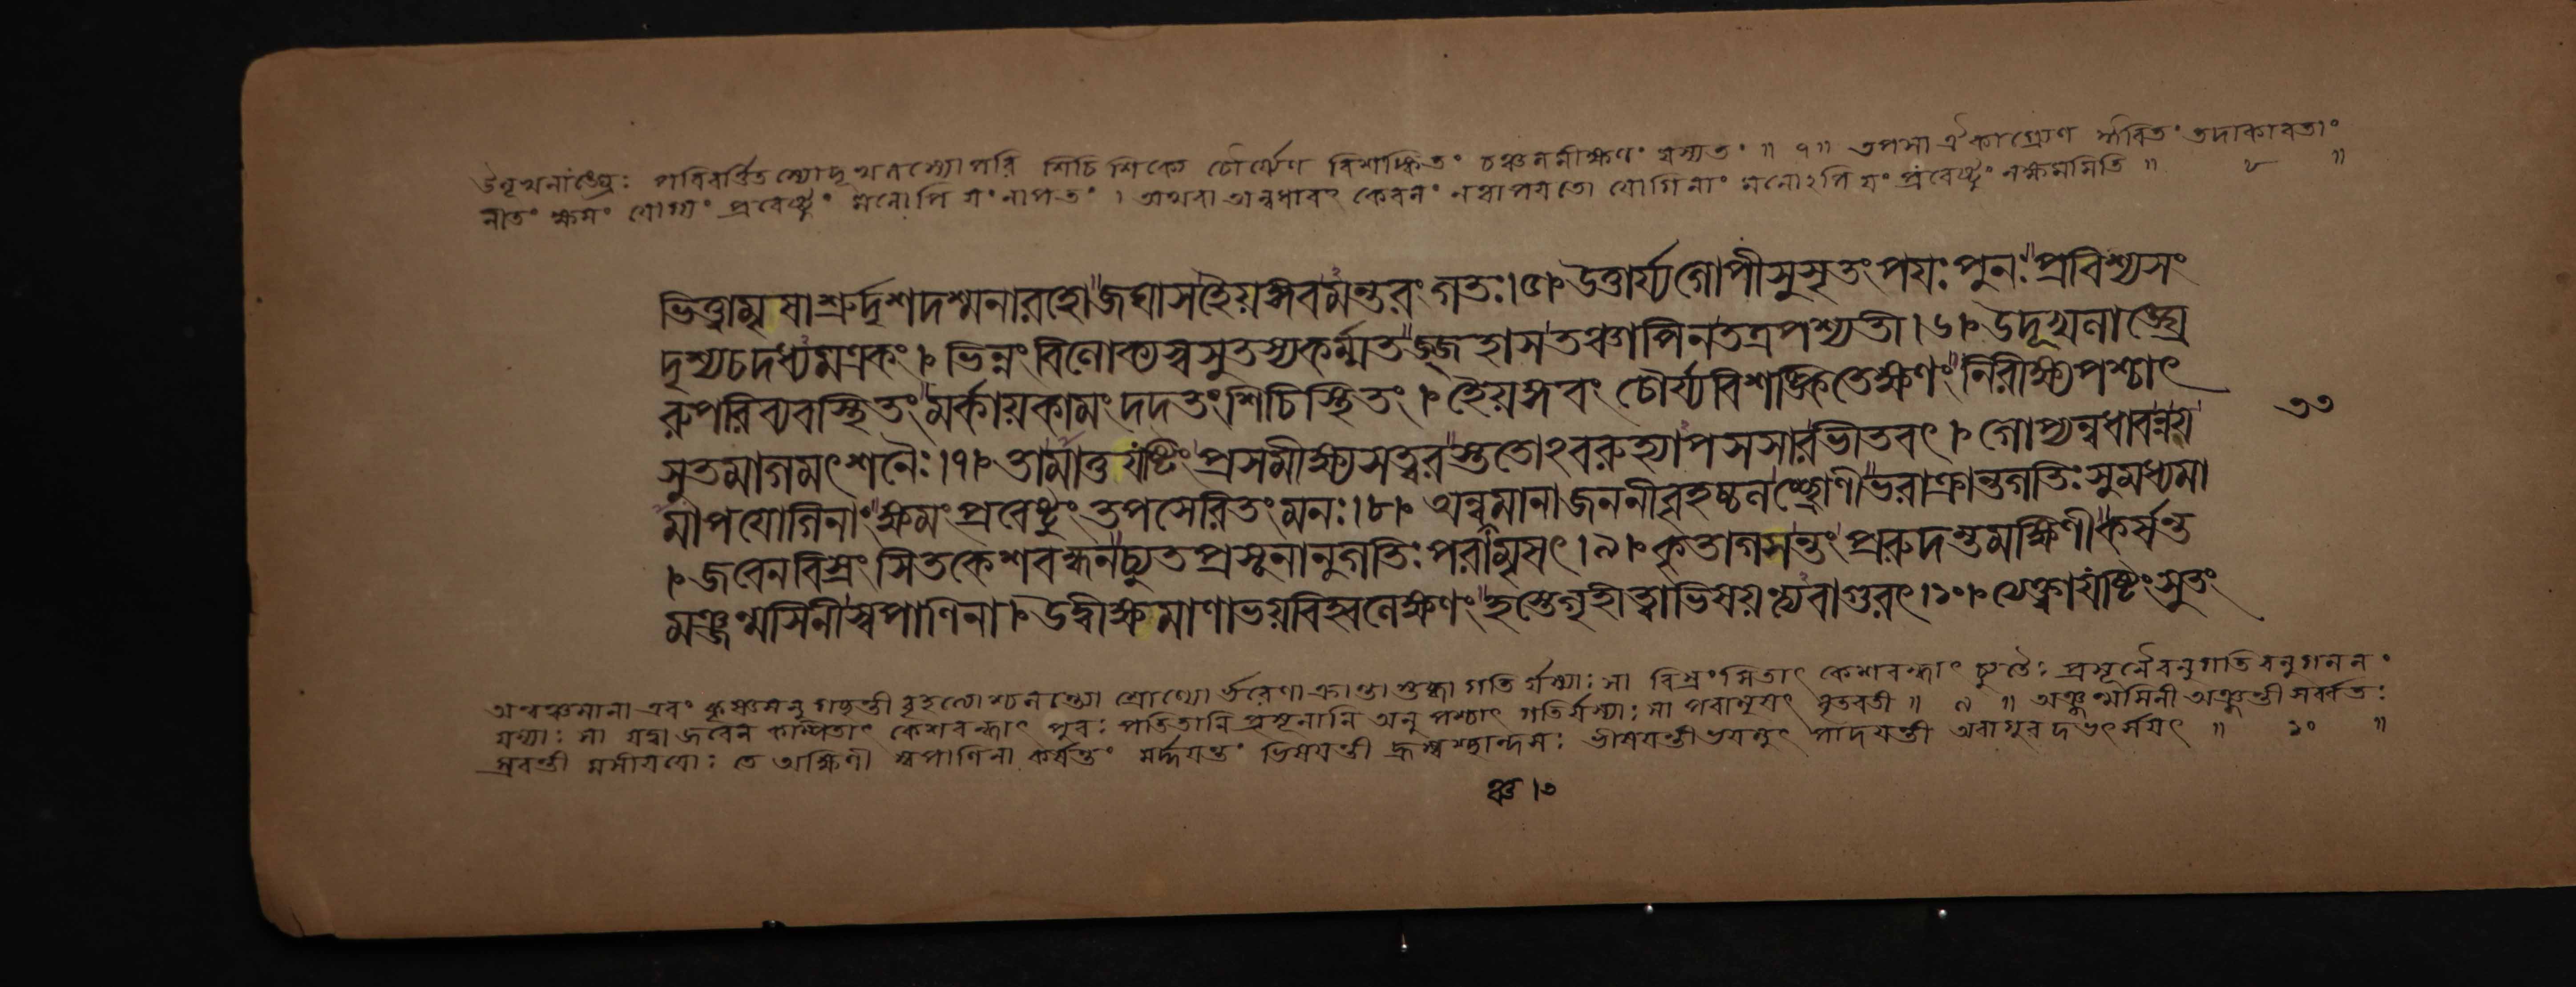 উলূখলাংঘ্রেঃ পরিবর্ত্তিতস্যোদূখলস্যোপরি শিচি শিক্যে চৌর্য্যেণ বিশঙ্কিতং চঞ্চলমীক্ষণং যস্য তং ॥ ৭ ॥ তপসা ঐকাগ্র্যেণ ঈরিতং তদাকারতাং
নীতং ক্ষমং যোগ্যং প্রবেষ্টুং মনোপি যং নাপ তং । অথবা অন্বধাবৎ কেবলং নত্বাপ যতো যোগিনাং মনোঽপি যং প্রবেষ্টুং নক্ষমমিতি ॥ ৮ ॥
ভিত্ত্বামৃষাশ্রুর্দৃশদশ্মনারহো জঘাসহৈয়ঙ্গবমন্তরংগতঃ।৫। উত্তার্য্যগোপীসুসৃতংপয়ঃপুনঃ প্রবিশ্যসং
দৃশ্যচদধ্যমত্রকং। ভিন্নংবিলোক্যস্বসুতস্যকর্ম্মত জ্জহাসতঞ্চাপিনতত্রপশ্যতী।৬। উদূখলাঙ্ঘ্রে
রুপরিব্যবস্থিতং মর্কায়কামংদদতংশিচিস্থিতং। হৈয়ঙ্গবং চৌর্য্যবিশঙ্কিতেক্ষণং নিরীক্ষ্যপশ্চাৎ
সুতমাগমৎশনৈঃ।৭। তামাত্তযষ্টিং প্রসমীক্ষ্যসত্বর স্ততোঽবরুহ্যাপসসারভীতবৎ। গোপ্যন্বধাবন্নয
মাপযোগিনাং ক্ষমংপ্রবেষ্টুং তপসেরিতংমনঃ।৮। অন্বঞ্চমানাজননীবৃহচ্চলচ্ছ্রোণীভরাক্রান্তগতিঃসুমধ্যমা
। জবেনবিস্রংসিতকেশবন্ধনচ্যুতপ্রসূনানুগতিঃপরামৃষৎ।৯। কৃতাগসন্তং প্ররুদন্তমক্ষিণী কর্ষন্ত
মঞ্জন্মসিনীস্বপাণিনা। উদ্বীক্ষমাণাভয়বিহ্বলেক্ষণং হস্তেগৃহীত্বাভিষয়ন্ত্যবাগুরৎ।১০। ত্যেক্ত্বাযষ্টিংসুতং
৩৩
অন্বঞ্চমানা এবং কৃষ্ণমনুগচ্ছন্তী বৃহত্যোশ্চলন্ত্যো শ্রোণ্যোর্ভরেণাক্রান্তা শুদ্ধা গতির্যস্যাঃ সা বিস্রংসিতাৎ কেশবন্ধাৎ চ্যুতৈঃ প্রসূনৈরনুগতিরনুগমনং
যস্যাঃ সা যদ্বা জবেন কম্পিতাৎ কেশবন্ধাৎ পুরঃ পতিতানি প্রসূনানি অনু পশ্চাৎ গতির্যস্যাঃ সা পরামৃষৎ ধৃতবতী ॥ ৯ ॥ অঞ্জন্মসিনী অঞ্জন্তী সর্ব্বতঃ
স্রবন্তী মসীযযোঃ তে অক্ষিণী স্বপাণিনা কর্ষন্তং মর্দ্দয়ন্তং ভিষয়ন্তী হ্রস্বশ্ছান্দসঃ ভীষয়ন্তী অবাগুরদভর্ৎসয়ৎ ॥ ১০ ॥